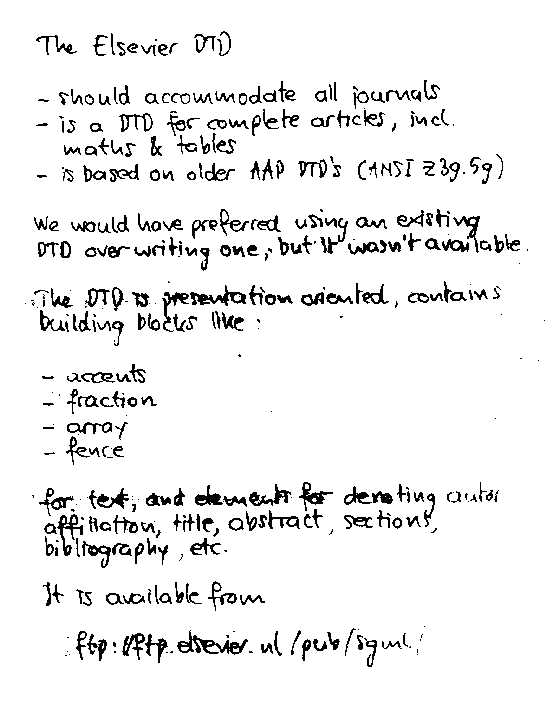 The Elsevier DTD
- should accommodate all journals
- is a DTD for complete articles, incl.
maths & tables
- is based on older AAP DTD's (ANSI Z39.59)
We would have preferred using an existing
DTD over writing one, but it wasn't available.
The DTD is presentation oriented, contains
building blocks like:
- accents
- fraction
- array
- fence
for text, and elements for denoting autor
affiliation, title, abstract, sections,
bibliography, etc.
It is available from
ftp://ftp.elsevier.nl/pub/sgml/